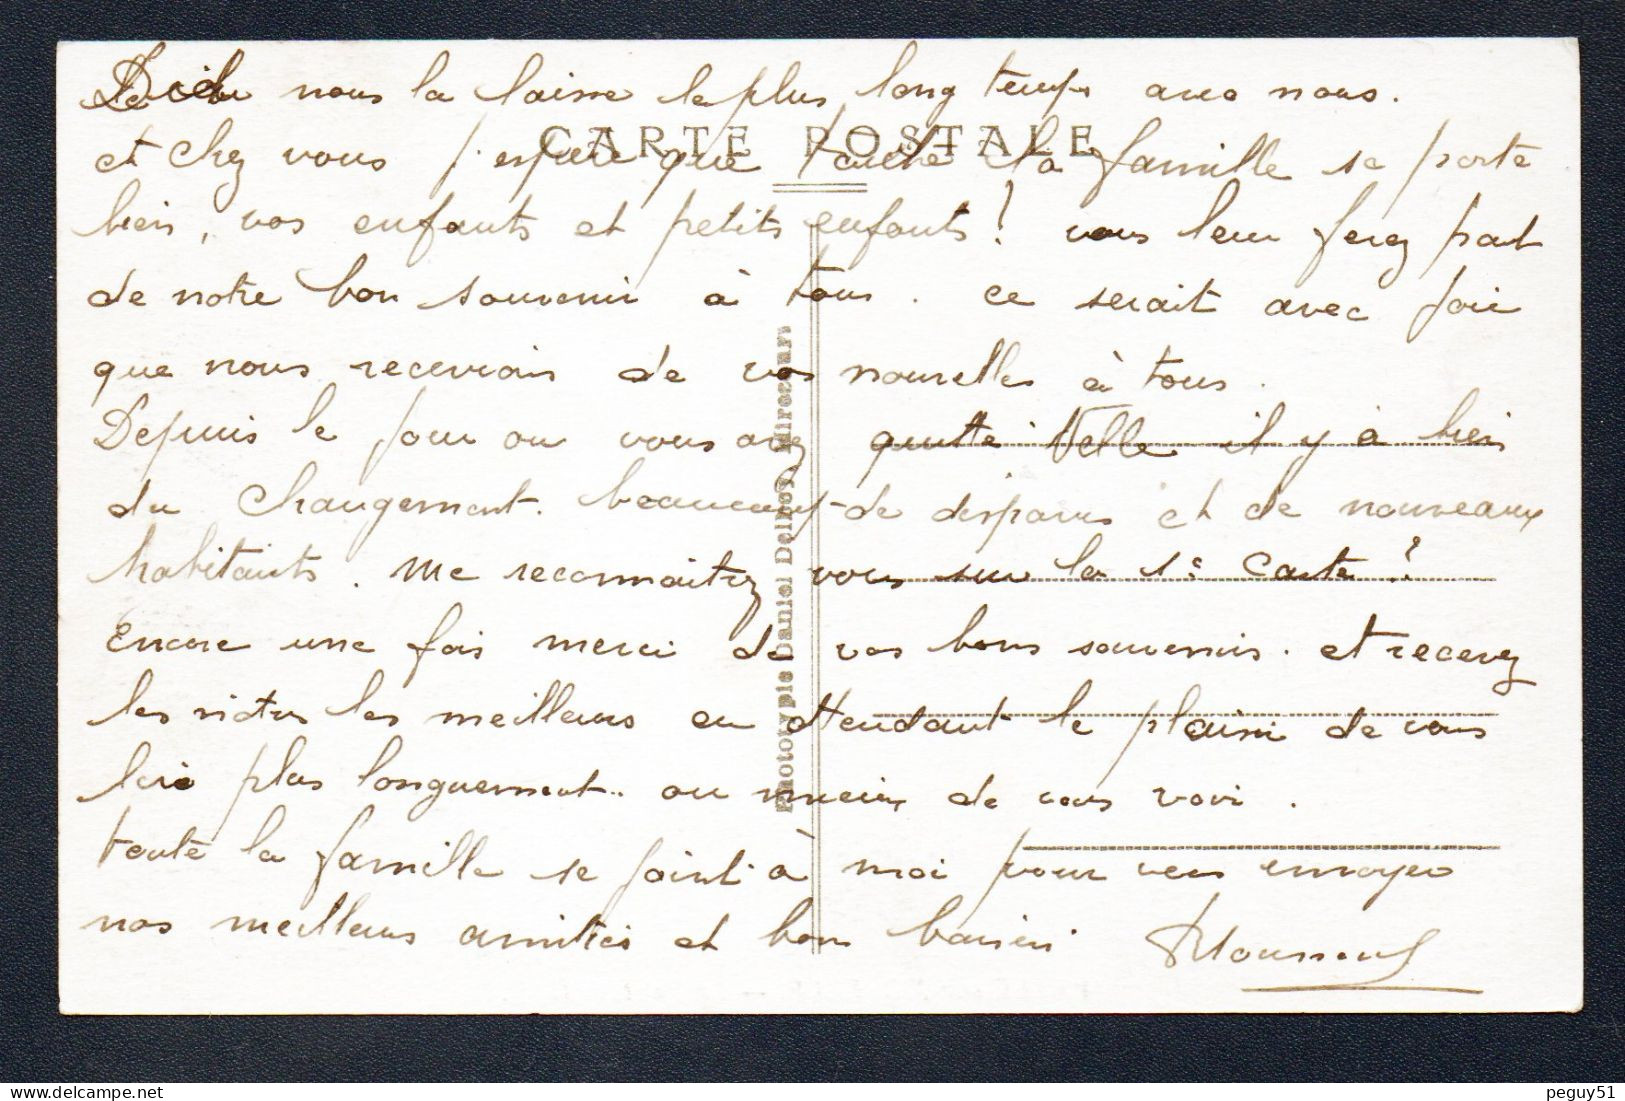 nous la laisse le plus long temps avec nous.
CARTE POSTALE
et chez vous j'espère que toute la famille se porte
bien, vos enfants et petits enfants! vous leur ferez part
de notre bon souvenir à tous. ce serait avec joie
que nous recevrions de vos nouvelles à tous.
Depuis le jour ou vous avez quitté Velle il y à bien
du changement. beaucoup de disparus et de nouveaux
habitants. Me reconnaitrez vous sur la 1e Carte?
Encore une fois merci de vos bons souvenirs. et recevez
les notres les meilleurs en attendant le plaisir de vous
lire plus longuement. ou mieux de vous voir.
toute la famille se joint à moi pour vous envoyer
nos meilleurs amitiés et bons baisers
Phototypie Daniel Delboy, Mirecourt
peguy51